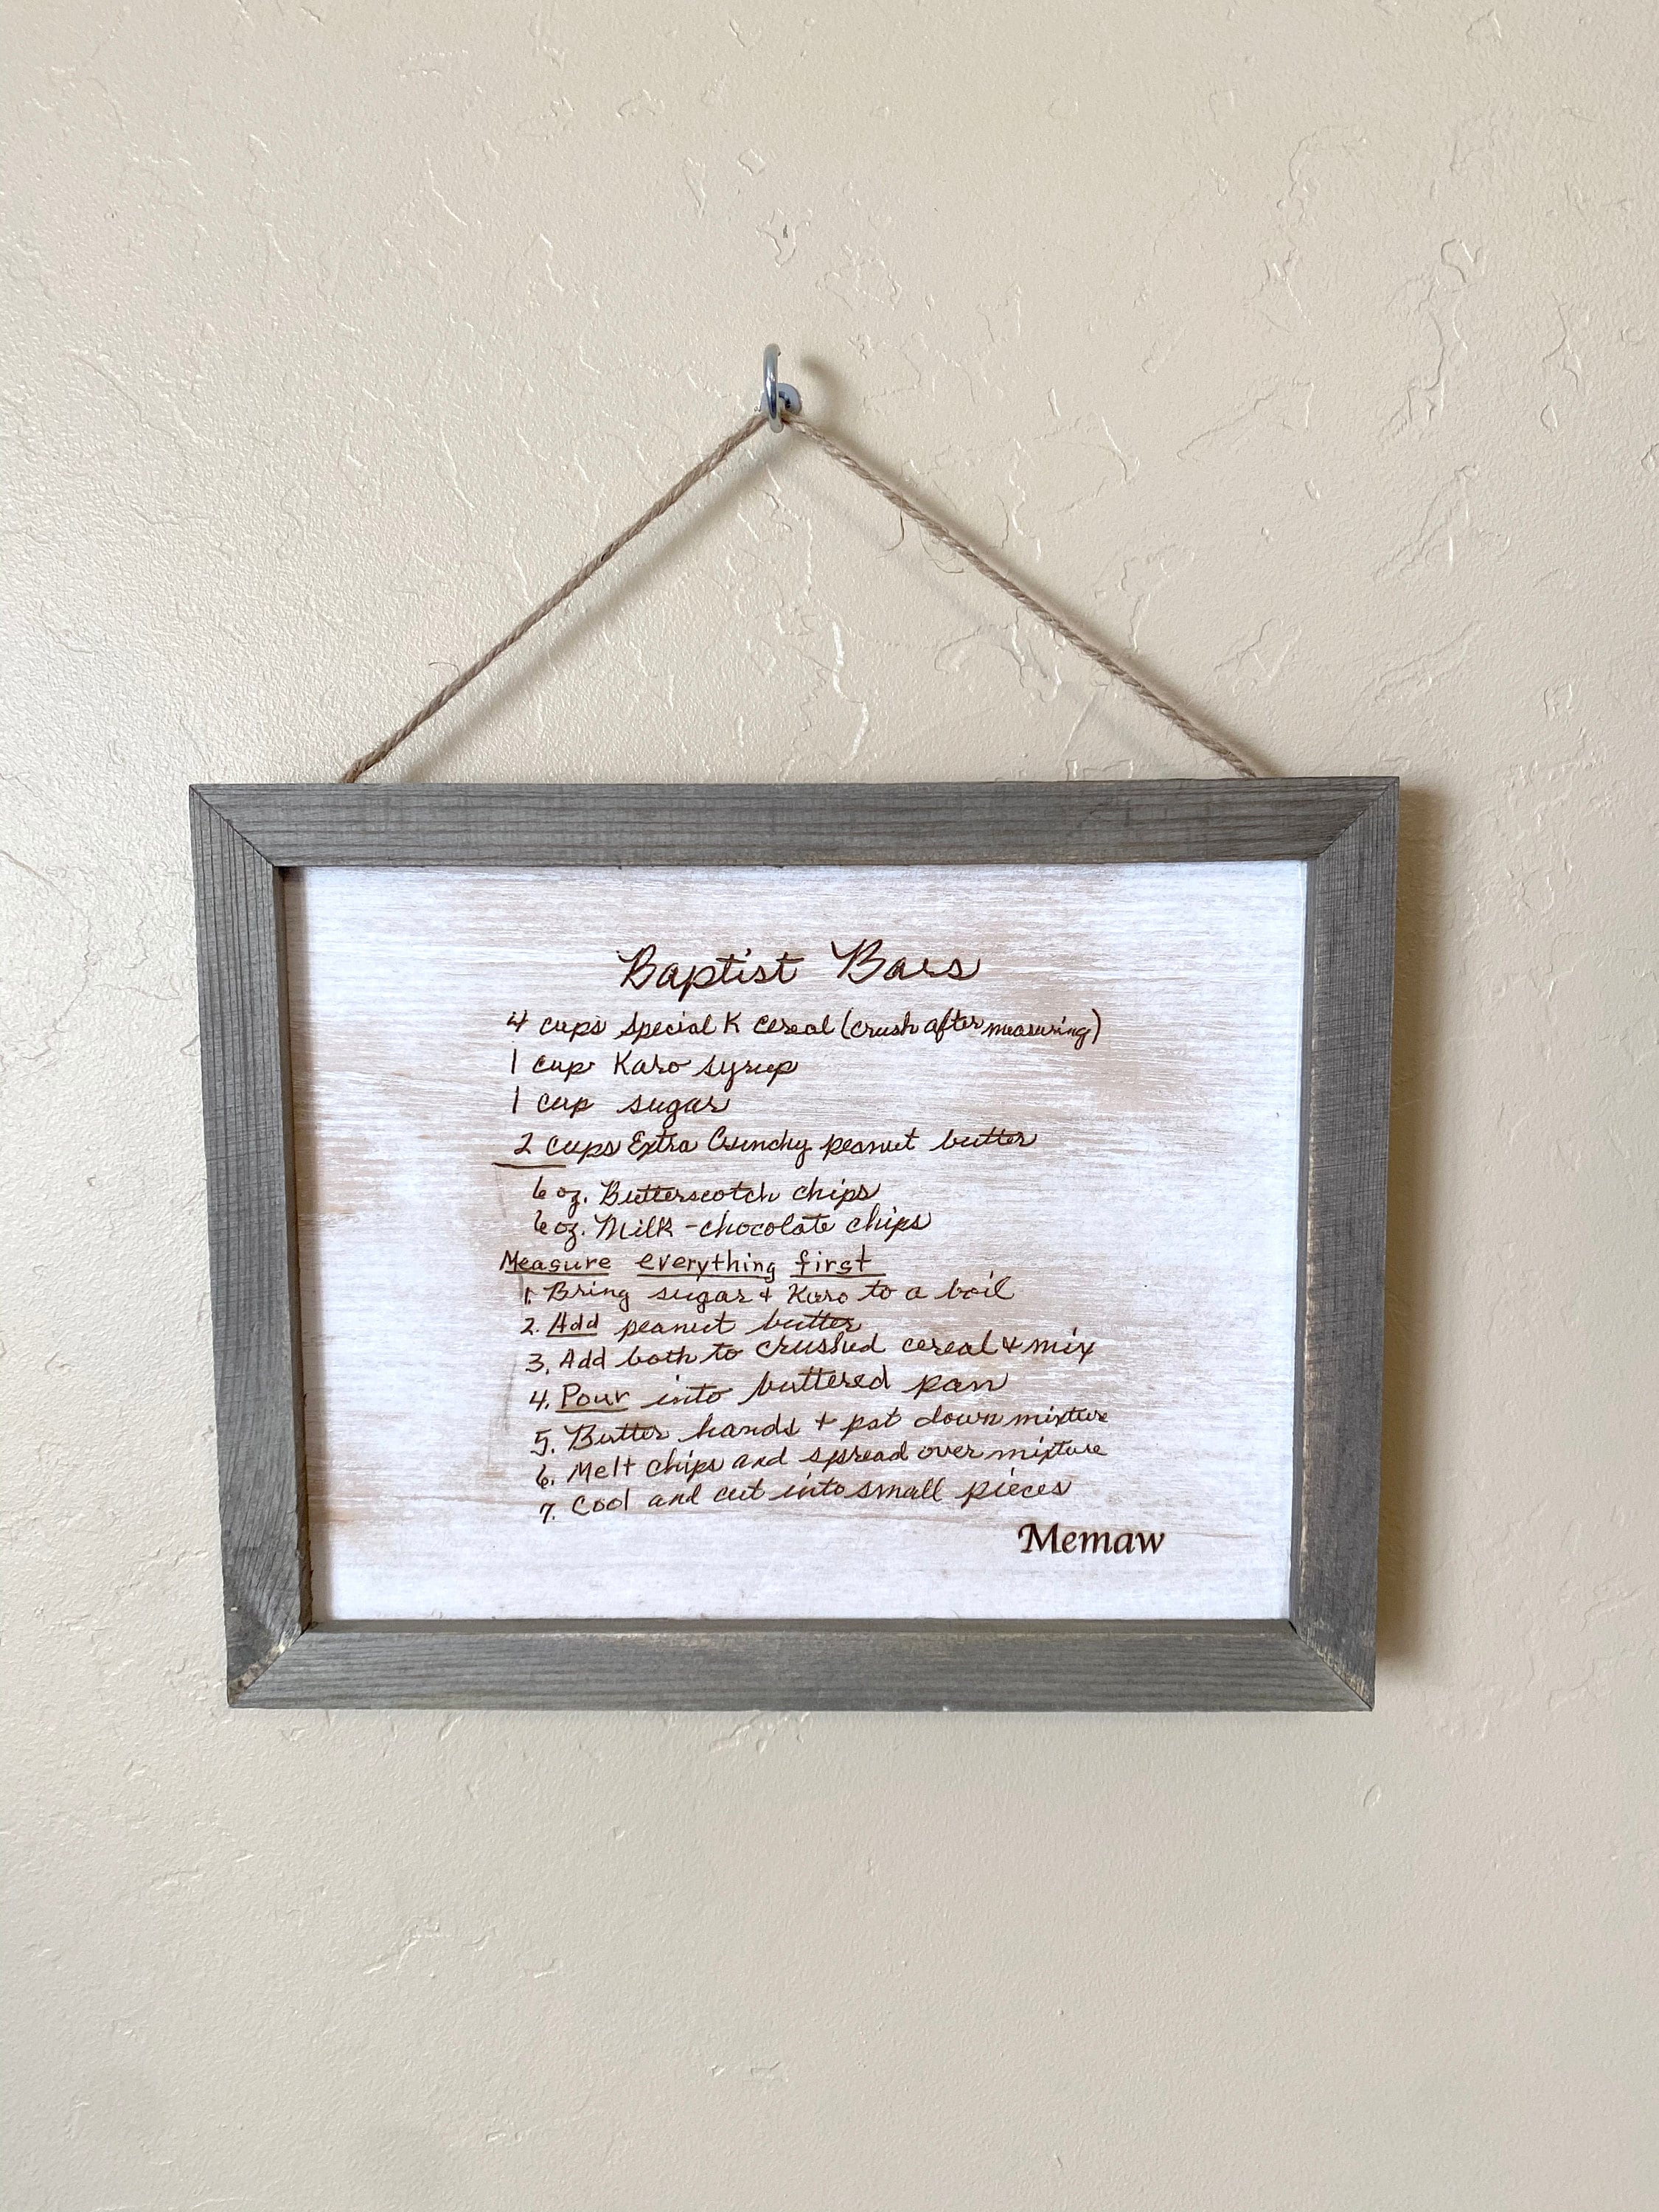 Baptist Bars
4 cups Special K cereal (crush after measuring)
1 cup Karo syrup
1 cup sugar
2 cups Extra Crunchy peanut butter
6 oz. Butterscotch chips
6 oz. Milk-chocolate chips
Measure everything first
1. Bring sugar & Karo to a boil
2. Add peanut butter
3. Add both to crushed cereal & mix
4. Pour into buttered pan
5. Butter hands + pat down mixture
6. Melt chips and spread over mixture
7. Cool and cut into small pieces
Memaw